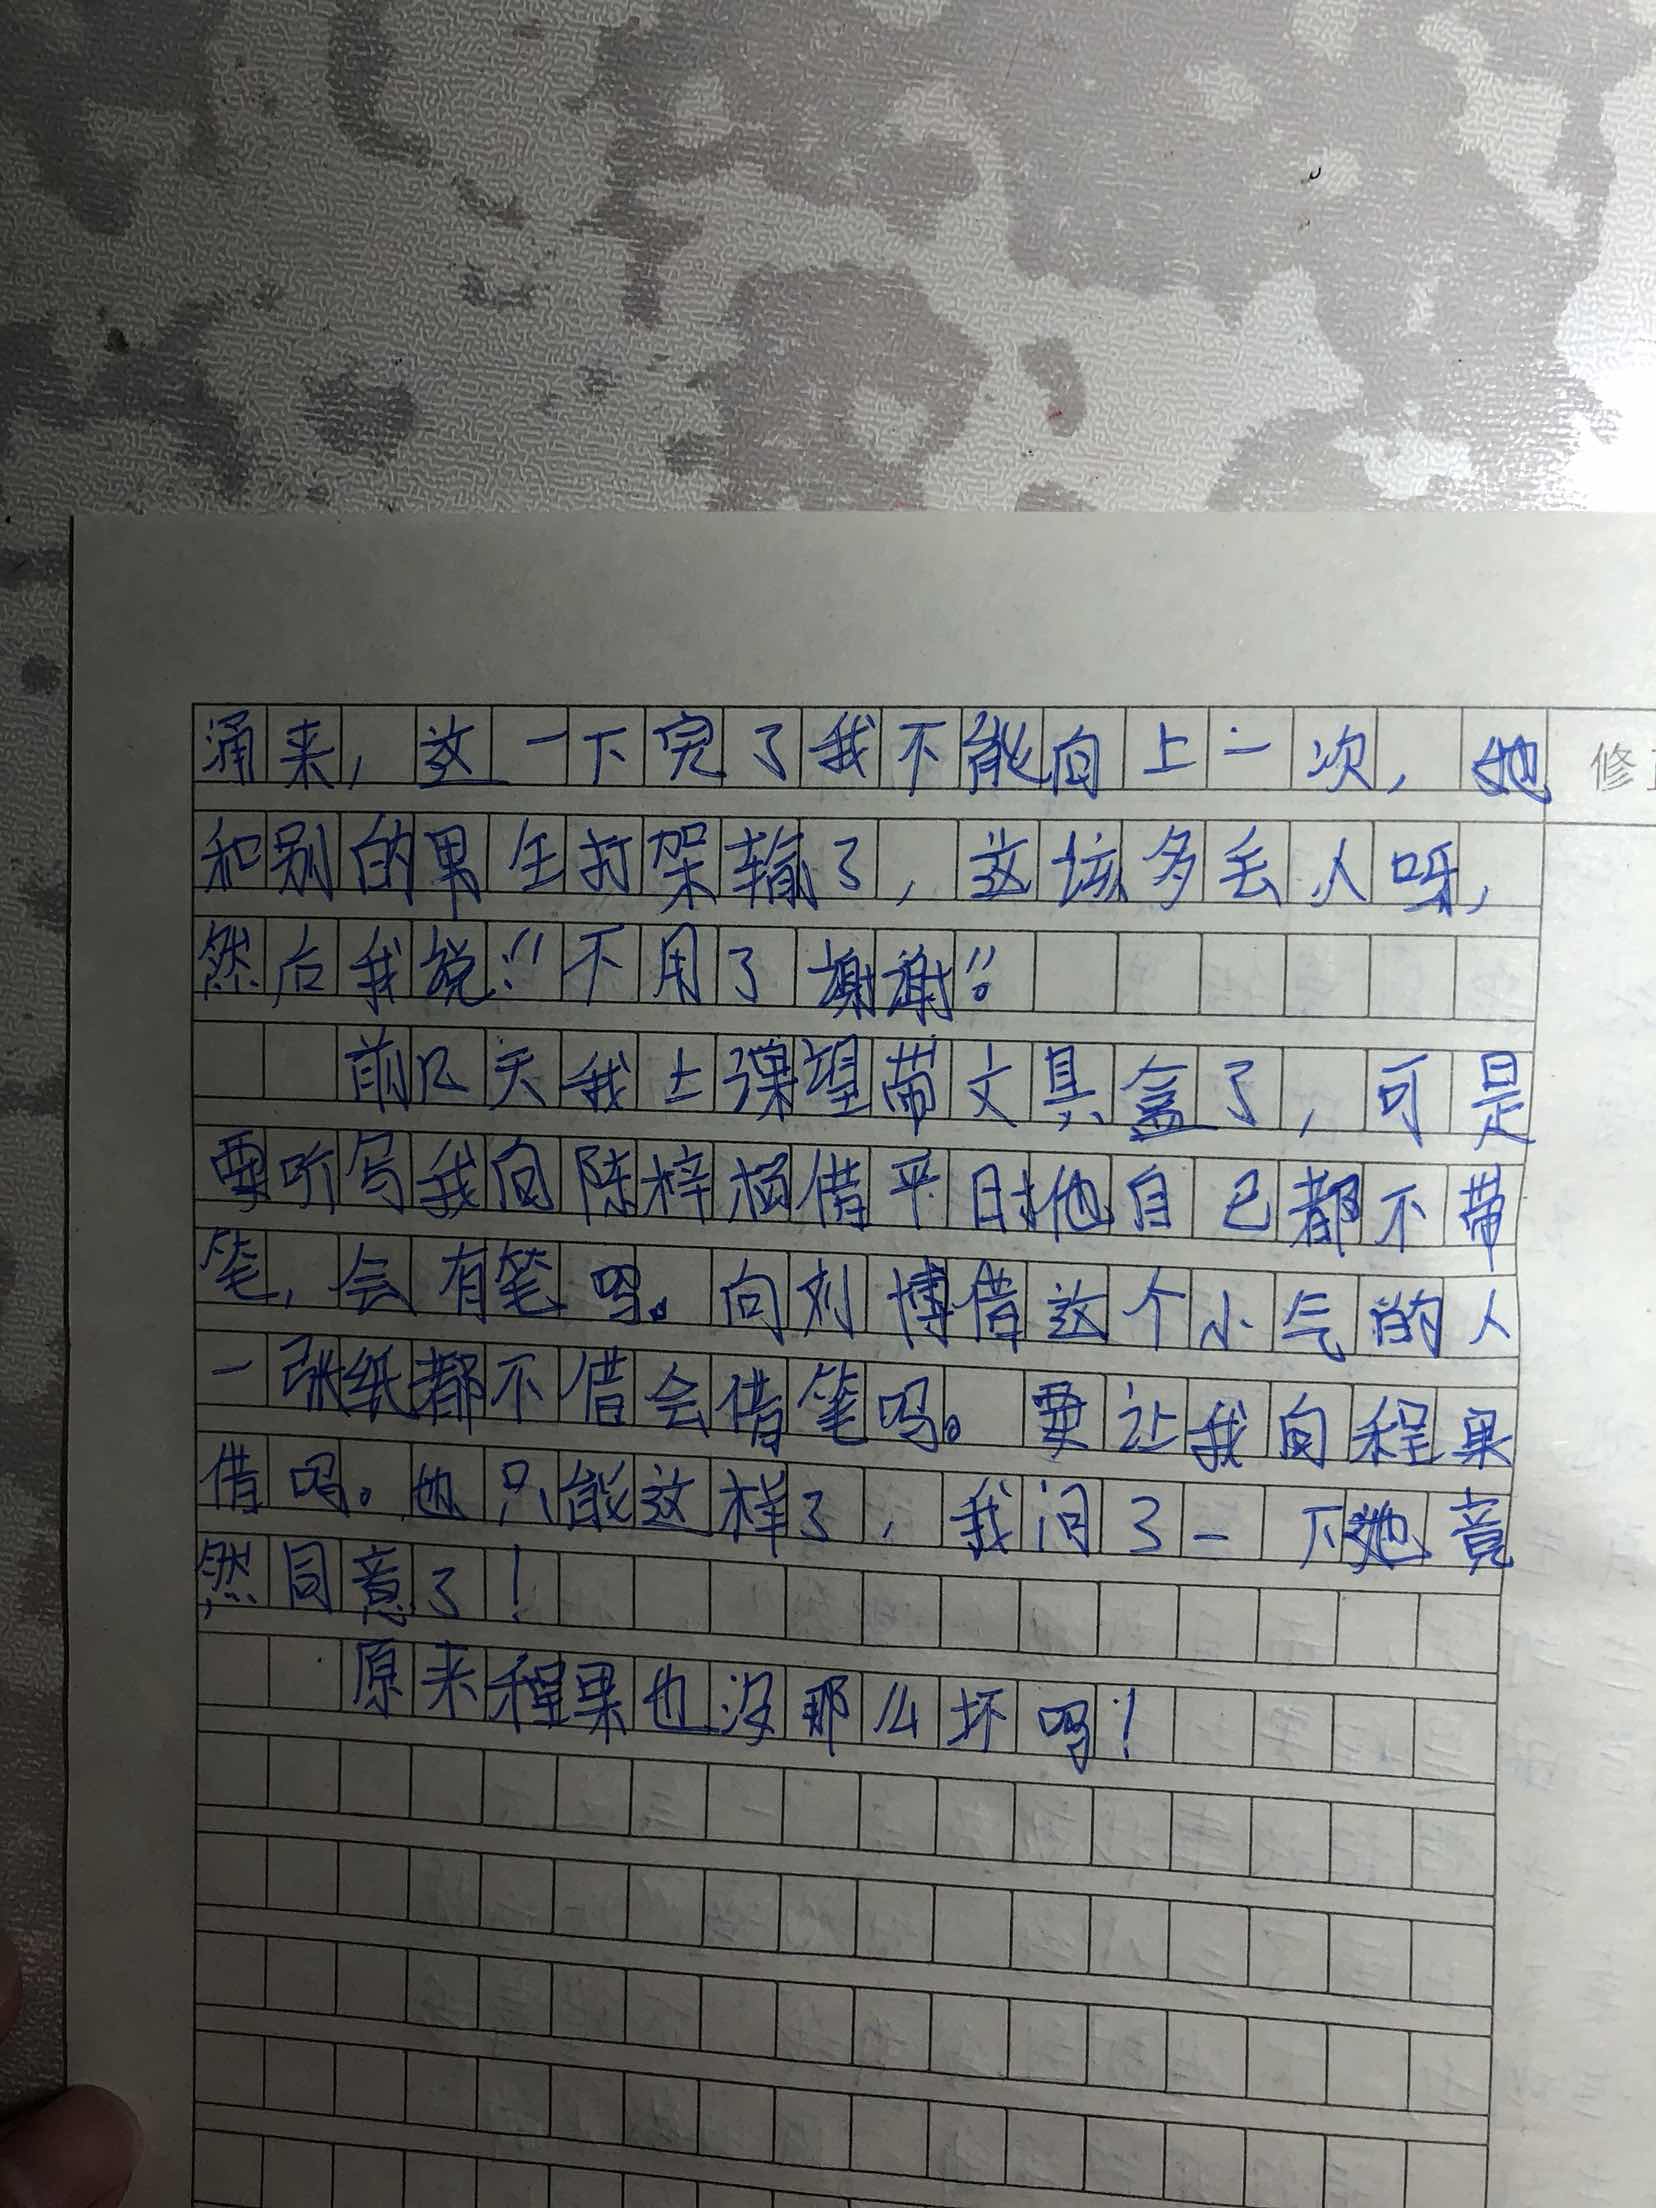 涌来，这一下完了我不能向上一次，她
修
和别的男生打架输了，这坛多丢人呀，
然后我说："不用了谢谢"。
前几天我上课望带文具盒了，可是
要听写我向陈梓杨借平日时他自己都不带
笔，会有笔吗。向刘博借这个小气的人
一张纸都不借会借笔吗。要让我向程果
借吗。也只能这样了，我问了一下她竟
然同意了！
原来程果也没那么坏吗！